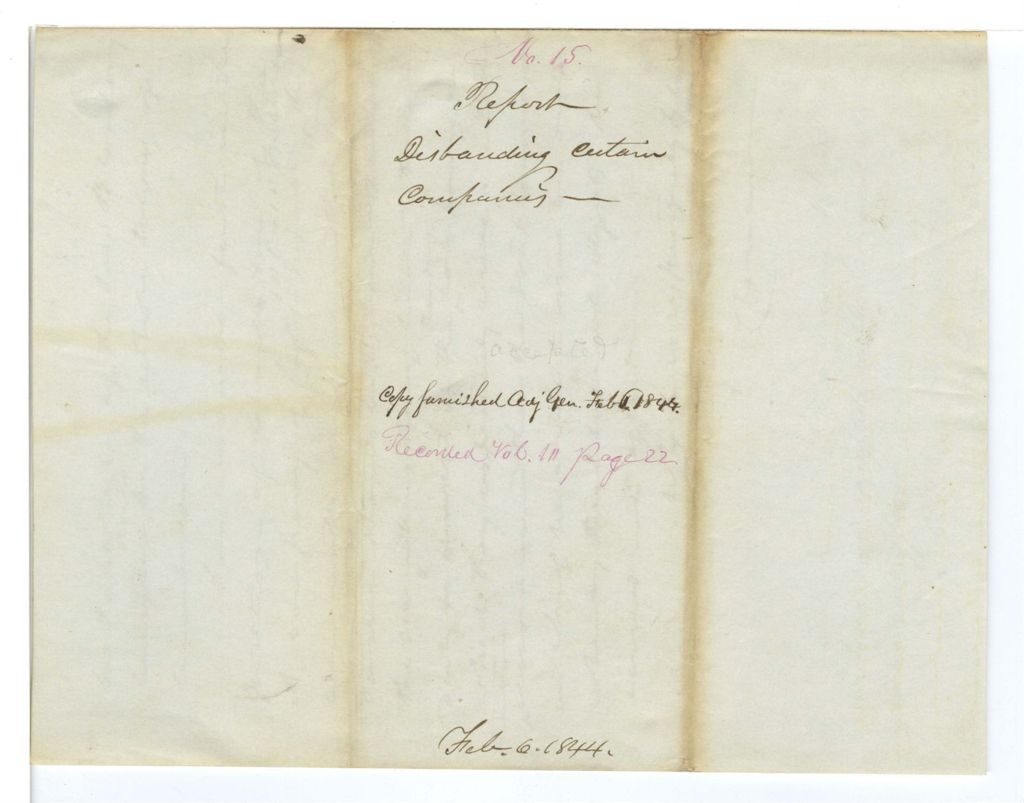 No. 15.
Report
Disbanding certain
Companies —
accepted
Copy furnished Adj Gen. Feb 6, 1844.
Recorded Vol. 10 page 22
Feb. 6. 1844.